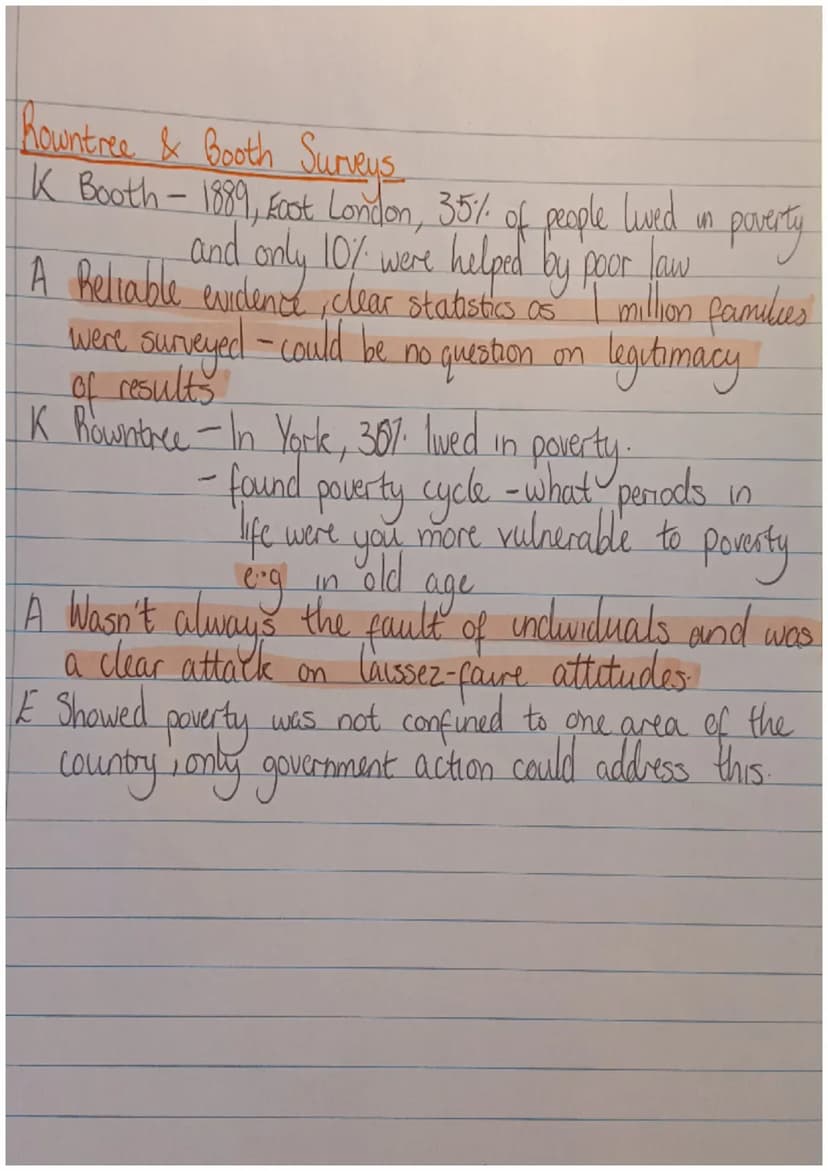 Rowntree & Booth Surveys
K Booth - 1889, East London, 35% of people lived in poverty
and only 10% were helped by poor law
A Reliable evidence, clear statistics as 1 million families
were surveyed - could be no question on legitimacy
of results
K Rowntree - In York, 30% lived in poverty.
- found poverty cycle - what periods in
life were you more vulnerable to poverty
e.g in old age
A Wasn't always the fault of individuals and was
a clear attack on laissez-faire attitudes.
E Showed poverty was not confined to one area of the
country, only government action could address this.